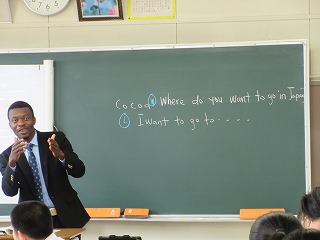 Cocoda Where do you want to go in Japan
I want to go to ....